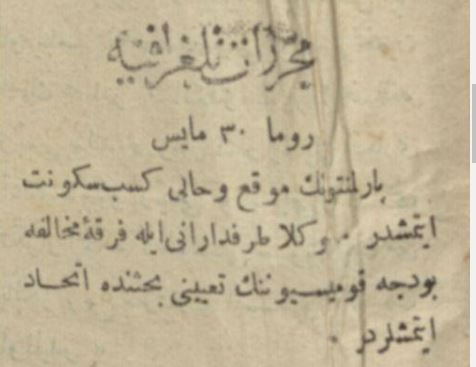 محررات تلغرافیه
روما ۳۰ مایس
پارلمنتونك موقع و حالی كسب سكونت
ایتمشدر . وكلا طرفدارانی ایله فرقهٔ مخالفه
بودجه قومیسیوننك تعیینی بحثنده اتحاد
ایتمشلردر .